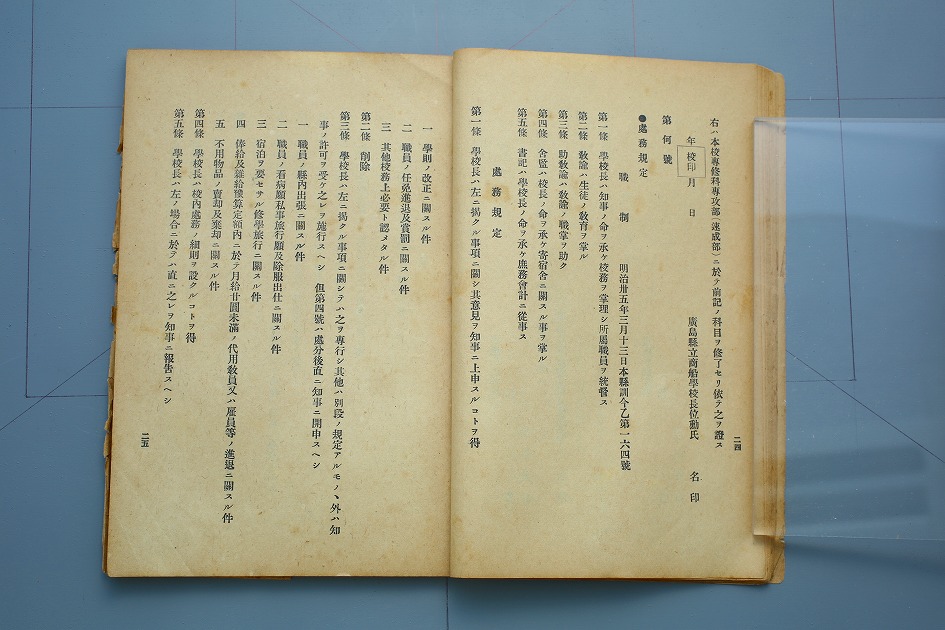 二四
右ハ本校專修科專攻部(速成部)ニ於テ前記ノ科目ヲ修了セリ依テ之ヲ證ス
年校印月　日
廣島縣立商船學校長位勳氏　名印
第何號
●處務規定
職制　明治卅五年三月十三日本縣訓令乙第一六四號
第一條　學校長ハ知事ノ命ヲ承ケ校務ヲ掌理シ所屬職員ヲ統督ス
第二條　敎諭ハ生徒ノ敎育ヲ掌ル
第三條　助敎諭ハ敎諭ノ職掌ヲ助ク
第四條　舍監ハ校長ノ命ヲ承ケ寄宿舍ニ關スル事ヲ掌ル
第五條　書記ハ學校長ノ命ヲ承ケ庶務會計ニ從事ス
處務規定
第一條　學校長ハ左ニ揭クル事項ニ關シ其意見ヲ知事ニ上申スルコトヲ得
一　學則ノ改正ニ關スル件
二　職員ノ任免進退及賞罰ニ關スル件
三　其他校務上必要ト認メタル件
第二條　削除
第三條　學校長ハ左ニ揭クル事項ニ關シテハ之ヲ專行シ其他ハ別段ノ規定アルモノヽ外ハ知
事ノ許可ヲ受ケ之レヲ施行スヘシ　但第四號ハ處分後直ニ知事ニ開申スヘシ
一　職員ノ縣內出張ニ關スル件
二　職員ノ看病願私事旅行願及除服出仕ニ關スル件
三　宿泊ヲ要セサル修學旅行ニ關スル件
四　俸給及雜給豫算定額內ニ於テ月給廿圓未滿ノ代用敎員又ハ雇員等ノ進退ニ關スル件
五　不用物品ノ賣却及棄却ニ關スル件
第四條　學校長ハ校內處務ノ細則ヲ設クルコトヲ得
第五條　學校長ハ左ノ場合ニ於テハ直ニ之レヲ知事ニ報告スヘシ
二五